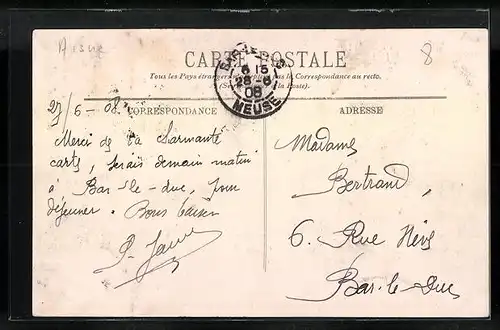 Aisne
8
CARTE POSTALE
Tous les Pays étrangers pas la Correspondance au recto.
la Poste).
BAR-LE-DUC
6 15
28-6
08
MEUSE
27/6-08
CORRESPONDANCE
ADRESSE
Merci de ta charmante
carte, serais demain matin
à Bar-le-duc, pour
déjeuner. Bons baisers
Madame
Bertrand,
6. Rue
Bar-le-Duc